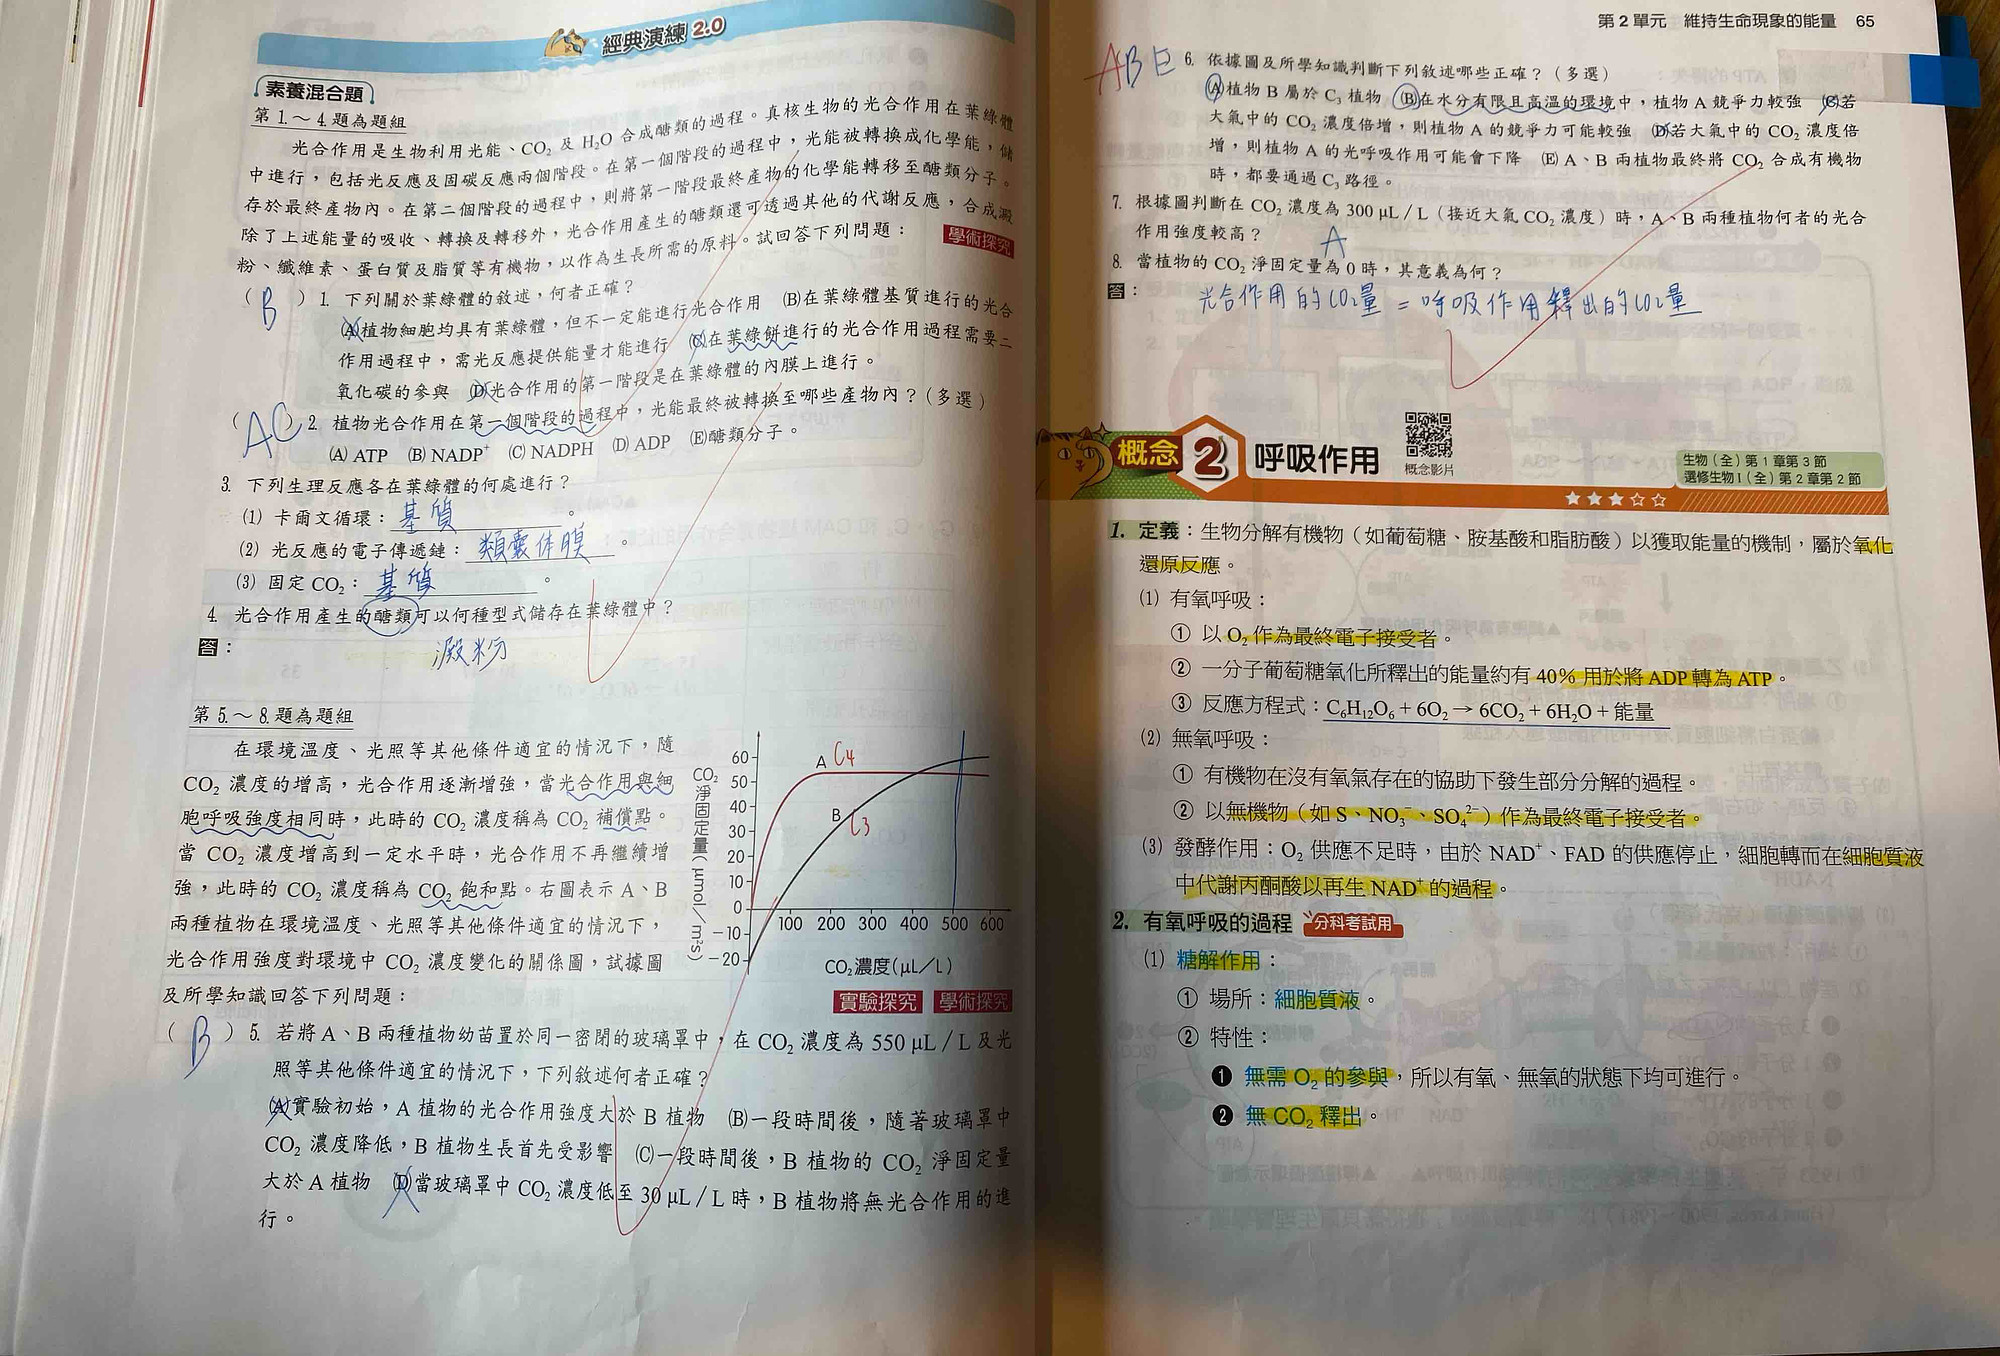 經典演練 2.0
素養混合題
第 1.～4. 題為題組
光合作用是生物利用光能、CO₂ 及 H₂O 合成醣類的過程。真核生物的光合作用在葉綠體
中進行，包括光反應及固碳反應兩個階段。在第一個階段的過程中，光能被轉換成化學能，儲
存於最終產物內。在第二個階段的過程中，則將第一階段最終產物的化學能轉移至醣類分子。
除了上述能量的吸收、轉換及轉移外，光合作用產生的醣類還可透過其他的代謝反應，合成澱
粉、纖維素、蛋白質及脂質等有機物，以作為生長所需的原料。試回答下列問題：
學術探究
（ B ）1. 下列關於葉綠體的敘述，何者正確？
(A)植物細胞均具有葉綠體，但不一定能進行光合作用 (B)在葉綠體基質進行的光合
作用過程中，需光反應提供能量才能進行 (C)在葉綠餅進行的光合作用過程需要二
氧化碳的參與 (D)光合作用的第一階段是在葉綠體的內膜上進行。
（ AC ）2. 植物光合作用在第一個階段的過程中，光能最終被轉換至哪些產物內？（多選）
(A) ATP (B) NADP⁺ (C) NADPH (D) ADP (E)醣類分子。
3. 下列生理反應各在葉綠體的何處進行？
(1) 卡爾文循環：基質。
(2) 光反應的電子傳遞鏈：類囊体膜。
(3) 固定 CO₂：基質。
4. 光合作用產生的醣類可以何種型式儲存在葉綠體中？
答：
澱粉
第 5.～8. 題為題組
在環境溫度、光照等其他條件適宜的情況下，隨
CO₂ 濃度的增高，光合作用逐漸增強，當光合作用與細
胞呼吸強度相同時，此時的 CO₂ 濃度稱為 CO₂ 補償點。
當 CO₂ 濃度增高到一定水平時，光合作用不再繼續增
強，此時的 CO₂ 濃度稱為 CO₂ 飽和點。右圖表示 A、B
兩種植物在環境溫度、光照等其他條件適宜的情況下，
光合作用強度對環境中 CO₂ 濃度變化的關係圖，試據圖
及所學知識回答下列問題：
CO₂淨固定量(μmol／m²s)
60
50
40
30
20
10
0
－10
－20
A C4
B C3
100 200 300 400 500 600
CO₂濃度(μL／L)
實驗探究 學術探究
（ B ）5. 若將 A、B 兩種植物幼苗置於同一密閉的玻璃罩中，在 CO₂ 濃度為 550 μL／L 及光
照等其他條件適宜的情況下，下列敘述何者正確？
(A)實驗初始，A 植物的光合作用強度大於 B 植物 (B)一段時間後，隨著玻璃罩中
CO₂ 濃度降低，B 植物生長首先受影響 (C)一段時間後，B 植物的 CO₂ 淨固定量
大於 A 植物 (D)當玻璃罩中 CO₂ 濃度低至 30 μL／L 時，B 植物將無光合作用的進
行。
第 2 單元 維持生命現象的能量 65
ABE 6. 依據圖及所學知識判斷下列敘述哪些正確？（多選）
(A)植物 B 屬於 C₃ 植物 (B)在水分有限且高溫的環境中，植物 A 競爭力較強 (C)若
大氣中的 CO₂ 濃度倍增，則植物 A 的競爭力可能較強 (D)若大氣中的 CO₂ 濃度倍
增，則植物 A 的光呼吸作用可能會下降 (E) A、B 兩植物最終將 CO₂ 合成有機物
時，都要通過 C₃ 路徑。
7. 根據圖判斷在 CO₂ 濃度為 300 μL／L（接近大氣 CO₂ 濃度）時，A、B 兩種植物何者的光合
作用強度較高？ A
8. 當植物的 CO₂ 淨固定量為 0 時，其意義為何？
答：光合作用的CO₂量 = 呼吸作用釋出的CO₂量
概念 2 呼吸作用
概念影片
生物（全）第 1 章第 3 節
選修生物 I（全）第 2 章第 2 節
1. 定義：生物分解有機物（如葡萄糖、胺基酸和脂肪酸）以獲取能量的機制，屬於氧化
還原反應。
(1) 有氧呼吸：
① 以 O₂ 作為最終電子接受者。
② 一分子葡萄糖氧化所釋出的能量約有 40% 用於將 ADP 轉為 ATP。
③ 反應方程式：C₆H₁₂O₆ + 6O₂ → 6CO₂ + 6H₂O + 能量
(2) 無氧呼吸：
① 有機物在沒有氧氣存在的協助下發生部分分解的過程。
② 以無機物（如 S、NO₃⁻、SO₄²⁻）作為最終電子接受者。
(3) 發酵作用：O₂ 供應不足時，由於 NAD⁺、FAD 的供應停止，細胞轉而在細胞質液
中代謝丙酮酸以再生 NAD⁺ 的過程。
2. 有氧呼吸的過程 分科考試用
(1) 糖解作用：
① 場所：細胞質液。
② 特性：
❶ 無需 O₂ 的參與，所以有氧、無氧的狀態下均可進行。
❷ 無 CO₂ 釋出。